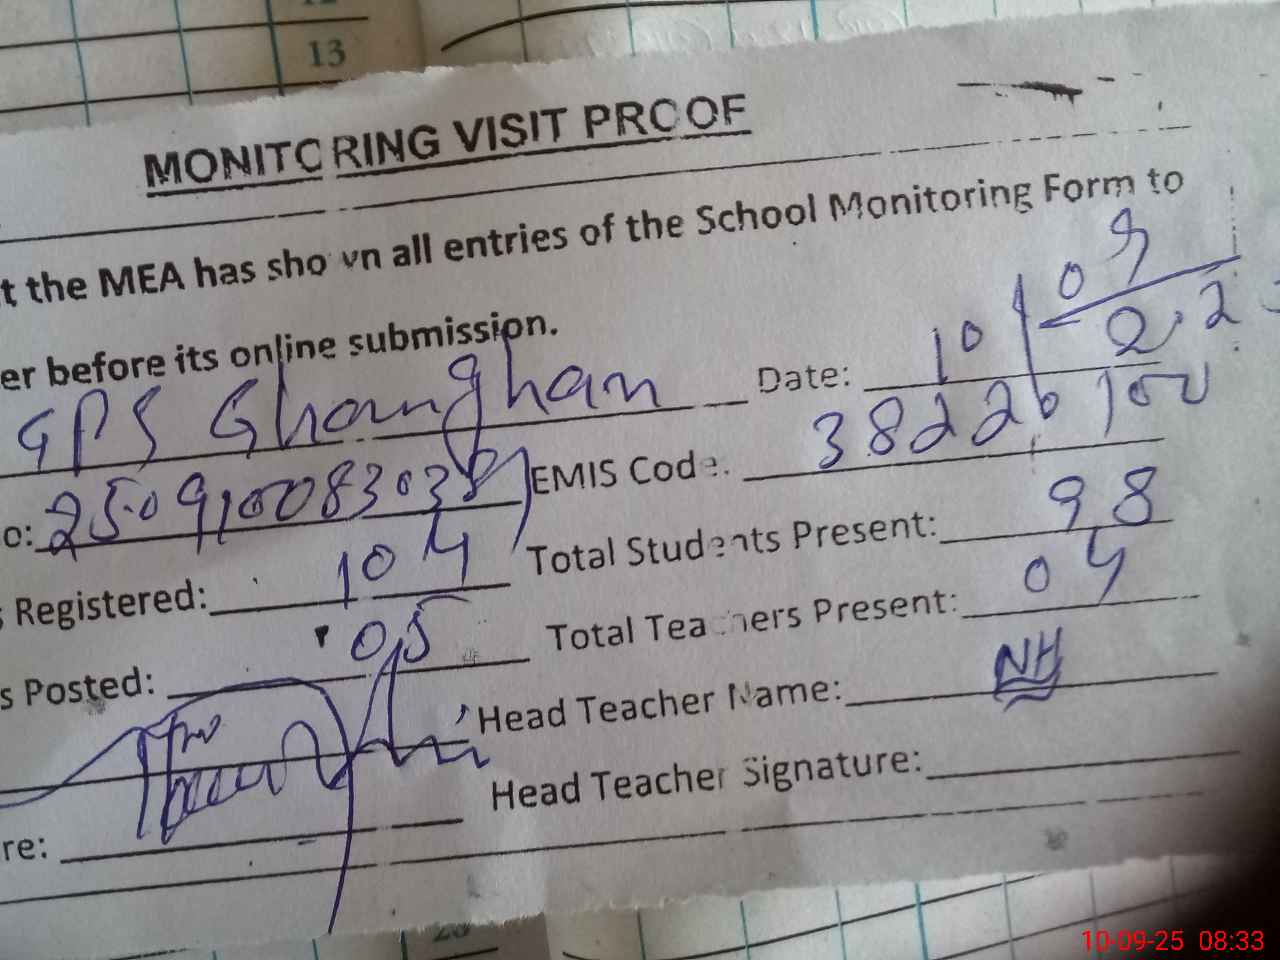 13
MONITORING VISIT PROOF
t the MEA has shown all entries of the School Monitoring Form to
er before its online submission.
GPS Ghanghan Date: 10/09
EMIS Code: 38226100
o:
s Registered: 104 Total Students Present: 98
s Posted: 05 Total Teachers Present: 04
Head Teacher Name: NH
re: Head Teacher Signature:
10-09-25 08:33